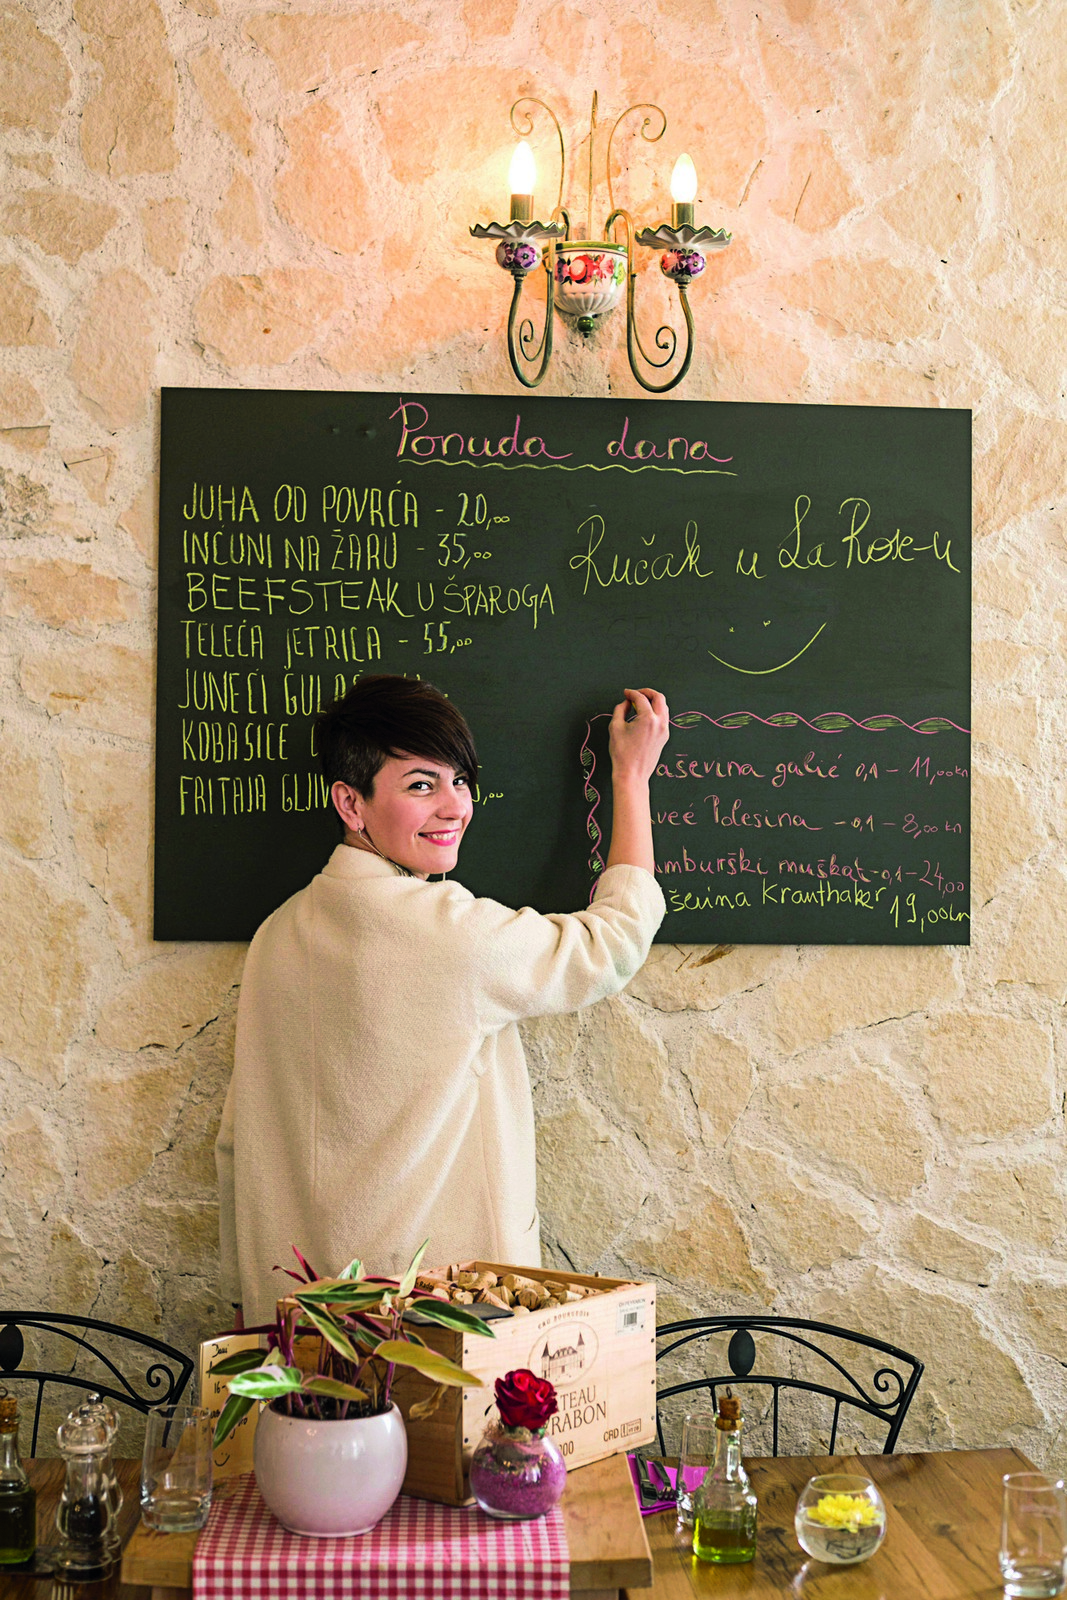 Ponuda dana
JUHA OD POVRĆA - 20,00
INĆUNI NA ŽARU - 35,00
BEEFSTEAK U ŠPAROGA
TELEĆA JETRICA - 55,00
JUNEĆI GULAŠ
KOBASICE
FRITAJA GLJIV
Ručak u La Rose-u
aševina galić 0,1 - 11,00 kn
veé Polesina - 0,1 - 8,00 kn
umburški muškat - 0,1 - 24,00
ševina Krauthaker 19,00 kn
TEAU
RABON
CRD